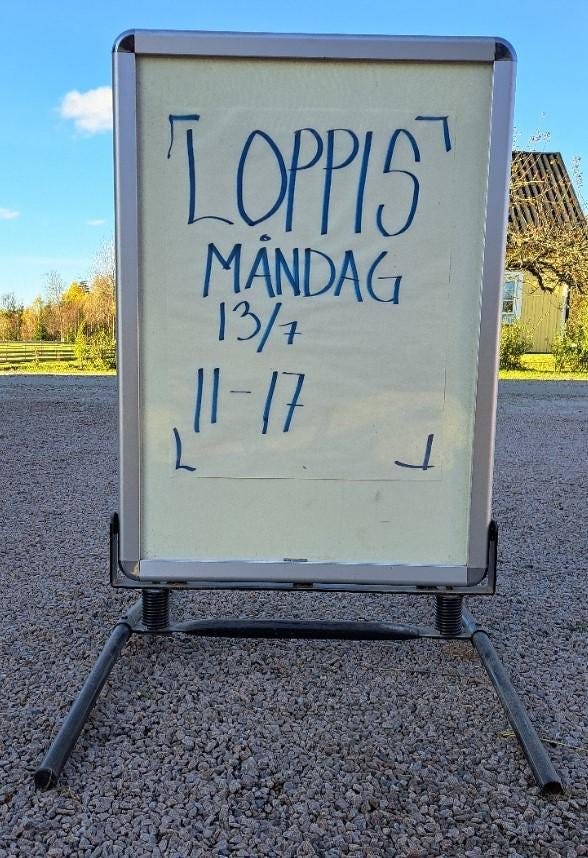 LOPPIS
MÅNDAG
13/7
11-17